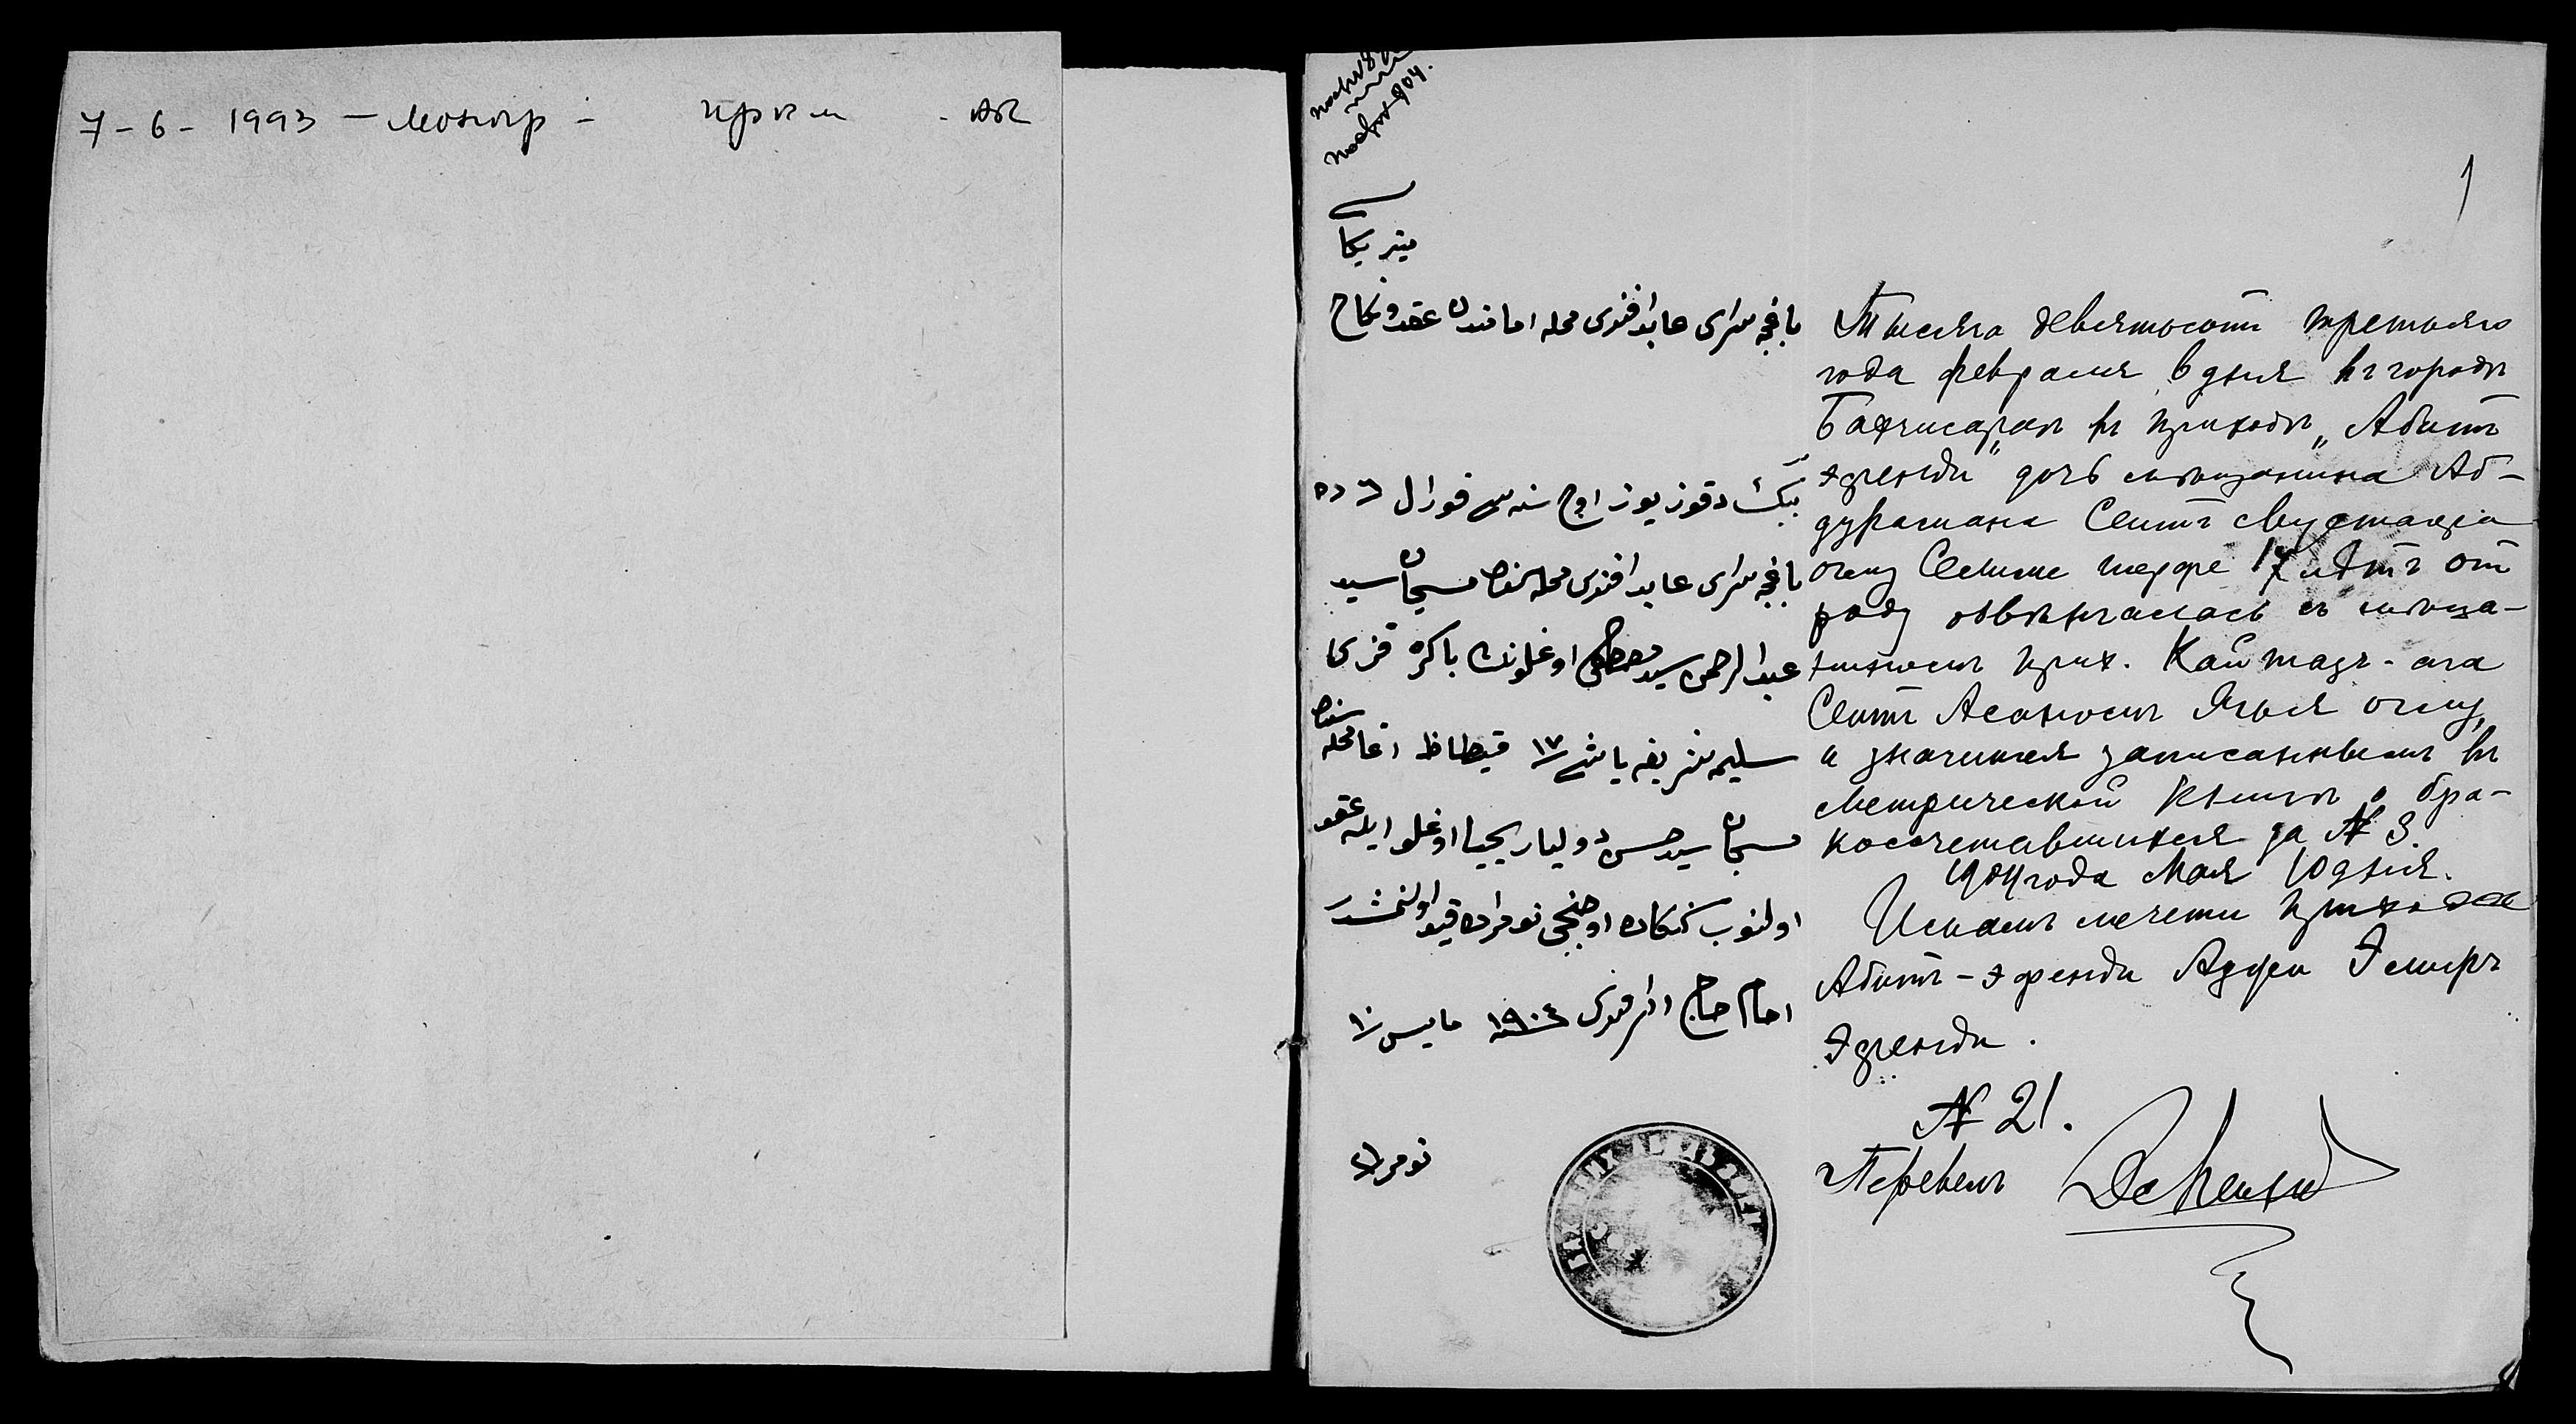 7 - 6 - 1993 -
1
باغچه سرای عابد افندی محله امامندن عقد و نکاح
بیك دقوز یوز اوچ سنه سی فورال ٦ ده
باغچه سرای عابد افندی محله سنده
عبدالرحمن سید مصطفی اوغلونك باکره قزی
سلیمه شریفه یاشی ١٧ قیطاظ اغا محله سنده
سید حسن یحیا اوغلو ایله عقد
اولنوب اوچنجی نومراده قید اولنمشدر
امام حاج افندی ١٩٠٤ مایس ١٠
نومر
Тысяча девятьсотъ третьяго
года февраля 6 дня въ городѣ
Бахчисараѣ въ приходѣ „Абитъ
эфенди" дочь мѣщанина Аб-
дурамана Сеитъ Мустафа
оглу Селиме шерфе 17 лѣтъ отъ
роду обвѣнчалась съ мѣща-
ниномъ прих. Кайтазъ-ага
Сеитъ Асаномъ Ягья оглу,
и значится записаннымъ въ
метрической книгѣ о бра-
косочетавшихся за № 3.
1904 года Мая 10 дня.
Имамъ мечети прихода
Абитъ-эфенди Аджи Эмиръ
Эфенди.
№ 21.
Перевелъ